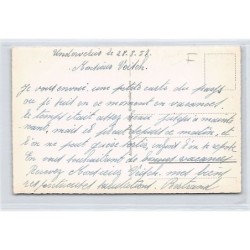 Undervelier le 28.7.56.
Monsieur Veitch.
Je vous envoie une petite carte du pays
ou je suis en ce moment en vacances.
le temps était assez beau jusqu'à mainte
nant, mais il pleut depuis ce matin, et
l'on ne peut guère sortir,
En vous souhaitant de bonnes vacances
Recevez Monsieur Veitch. mes bien
respectueuses salutations. Bertrand
F